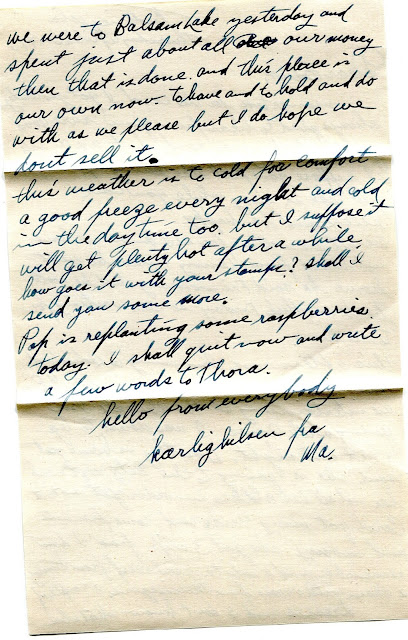 we were to Balsam Lake yesterday and
spent just about all our money
then that is done. and this place is
our own now. to have and to hold and do
with as we please but I do hope we
dont sell it.
this weather is to cold for comfort
a good freeze every night and cold
in the daytime too. but I suppose it
will get plenty hot after a while.
how goes it with your stamps? shall I
send you some more.
Pop is replanting some raspberries
today. I shall quit now and write
a few words to Thora.
hello from everybody
kærlighilsen fra
Ma.